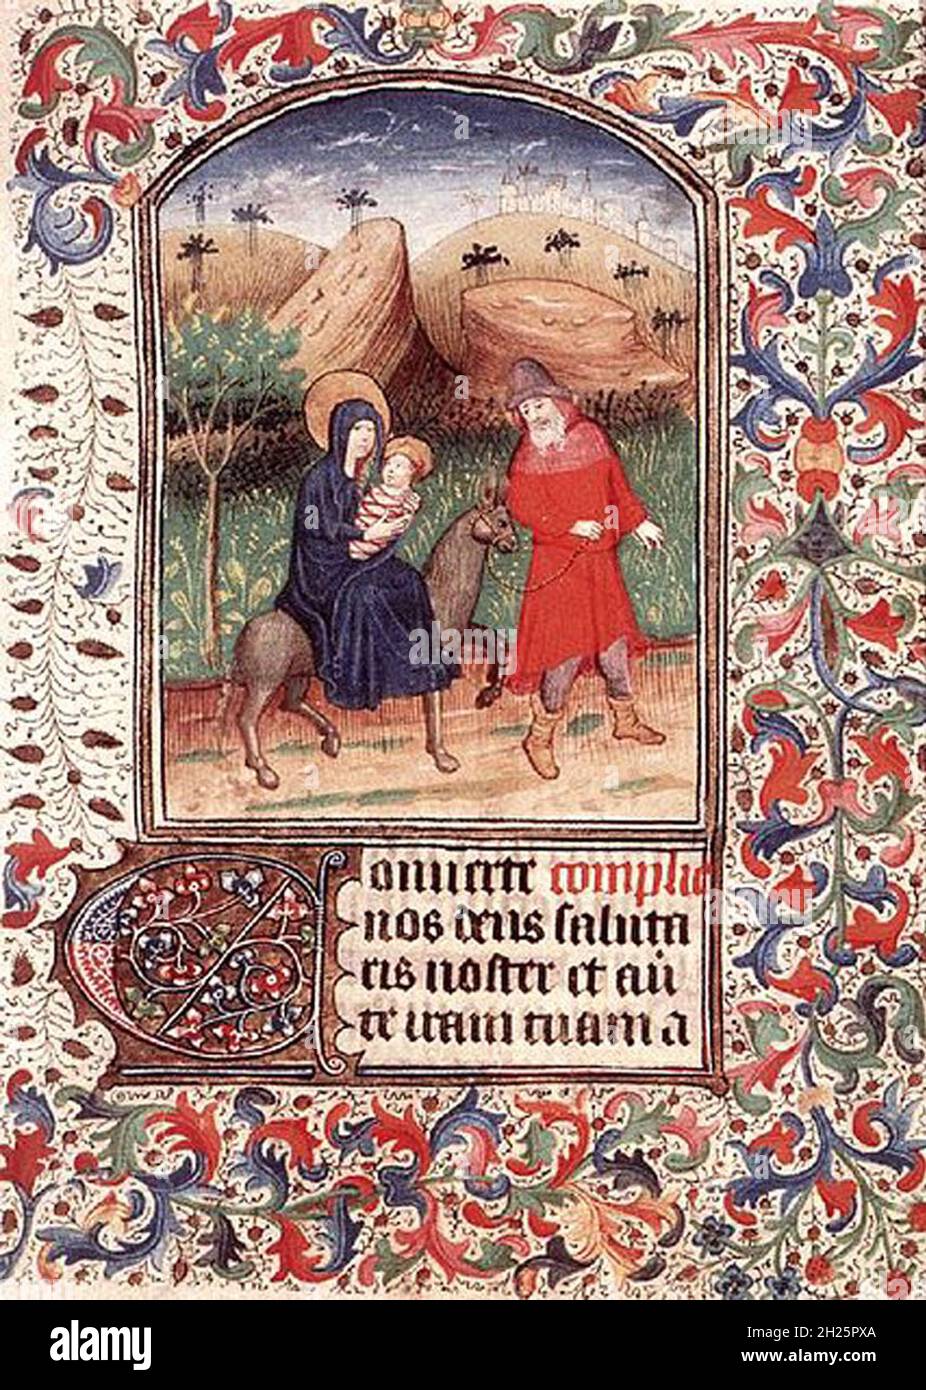 Converte complie
nos deus saluta
ris noster et au
te iram tuam a
alamy
Image ID: 2H25PXA
www.alamy.com